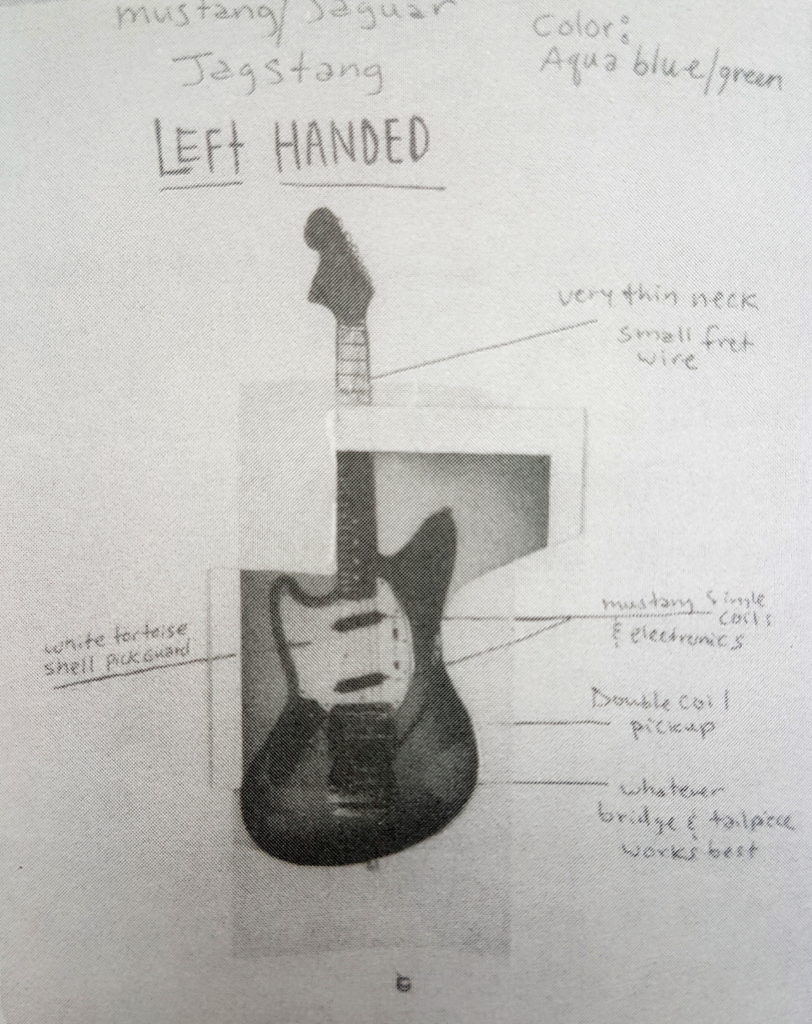 mustang/Jaguar
Jagstang
Color:
Aqua blue/green
LEFT HANDED
very thin neck
small fret
wire
white tortoise
shell pickguard
mustang single
coils
& electronics
Double coil
pickup
whatever
bridge & tailpiece
works best